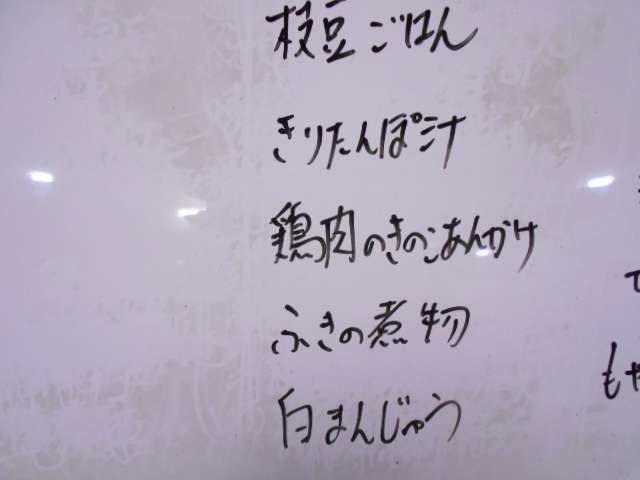 枝豆ごはん
きりたんぽ汁
鶏肉のきのこあんかけ
ふきの煮物
白まんじゅう
もや